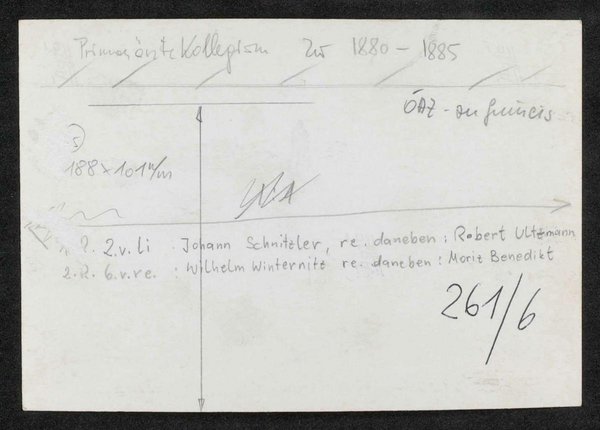 Primarärzte Kollegium Zw 1880 - 1885
ÖAZ -
188 x 101 m/m
2. v. li . Johann Schnitzler, re. daneben : Robert Ultzmann
2. R. 6. v. re. : Wilhelm Winternitz re. daneben : Moriz Benedikt
261/6